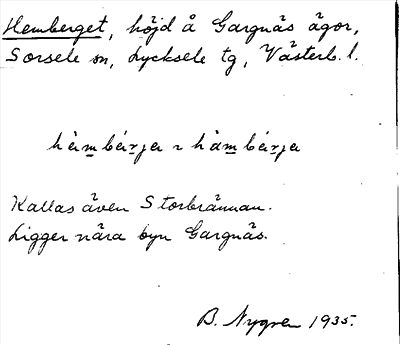 Hemberget, höjd å Gargnäs ägor,
Sorsele sn, Lycksele tg, Västerb. l.
hèm̲bér̲ja ~ hàm̲bér̲ja
Kallas även Storbrännan.
Ligger nära byn Gargnäs.
B. Nygren 1935.